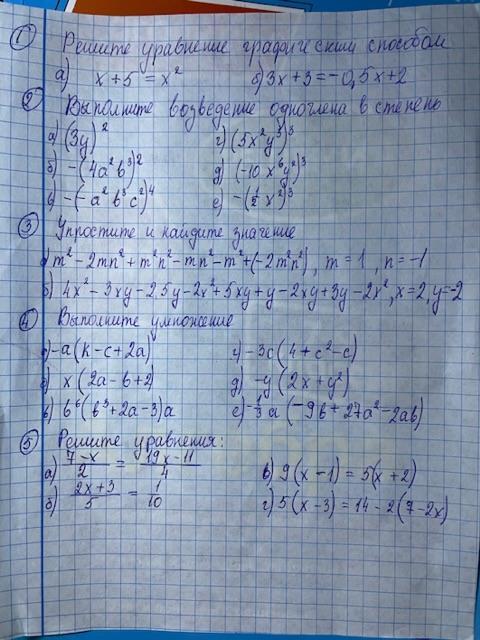 ① Решите уравнение графическим способом
а) x + 5 = x² б) 3x + 3 = -0,5x + 2
② Выполните возведение одночлена в степень
а) (3y)² г) (5x²y³)³
б) -(4a²b³)² д) (-10x⁶y²)³
в) -(-a²b³c²)⁴ е) -(1/2 x²)³
③ Упростите и найдите значение
а) m² - 2mn² + m²n² - mn² - m² + (-2m²n²), m = 1, n = -1
б) 4x² - 3xy - 2,5y - 2x² + 5xy + y - 2xy + 3y - 2x², x = 2, y = -2
④ Выполните умножение
а) -a(k - c + 2a) г) -3c(4 + c² - c)
б) x(2a - b + 2) д) -y(2x + y²)
в) b⁶(b³ + 2a - 3)a е) -1/3 a(-9b + 27a² - 2ab)
⑤ Решите уравнения:
а) (7 - x)/2 = (19x - 11)/4 в) 9(x - 1) = 5(x + 2)
б) (2x + 3)/5 = 1/10 г) 5(x - 3) = 14 - 2(7 - 2x)